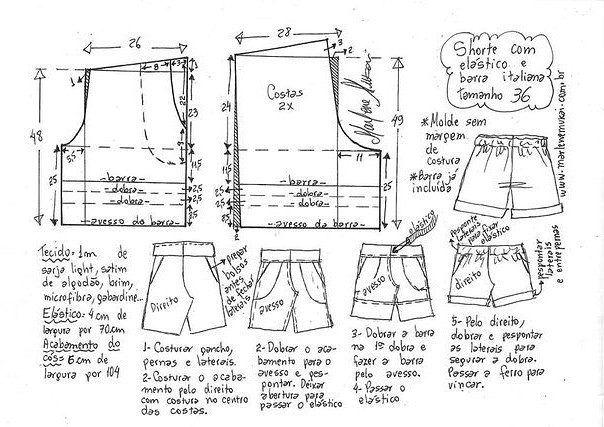 26
28
Shorte com
elástico e
barra italiana
tamanho 36
www.marlenemukai.com.br
*Molde sem
margem
de
costura
*Barra já
incluída
3
8
3
1
22
23
9
48
25
5,5
11,5
2,5
2,5
- barra -
- dobra -
- dobra -
- avesso da barra -
3
2
Costas
2X
Marlene Mukai
24
49
25
11
11,5
2,5
2,5
8,5
2
- barra -
- dobra -
- dobra -
- avesso da barra -
Tecido: 1m de
sarja light, satim
de algodão, brim,
microfibra, gabardine...
Elástico: 4 cm de
largura por 70cm
Acabamento do
cós: 6 cm de
largura por 104
Direito
pregar
bolsos
antes
de fechar
laterais
avesso
elástico
avesso
pesponte
laterais
para fixar
elástico
direito
pespontar
laterais
e entrepernas
1- Costurar gancho,
pernas e laterais.
2- Costurar o acaba-
mento pelo direito
com costura no centro
das costas.
2- Dobrar o aca-
bamento para o
avesso e pes-
pontar. Deixar
abertura para
passar o elástico
3- Dobrar a barra
na 1ª dobra e
fazer a barra
pelo avesso.
4- Passar o
elástico
5- Pelo direito,
dobrar e pespontar
as laterais para
segurar a dobra.
Passar a ferro para
vincar.